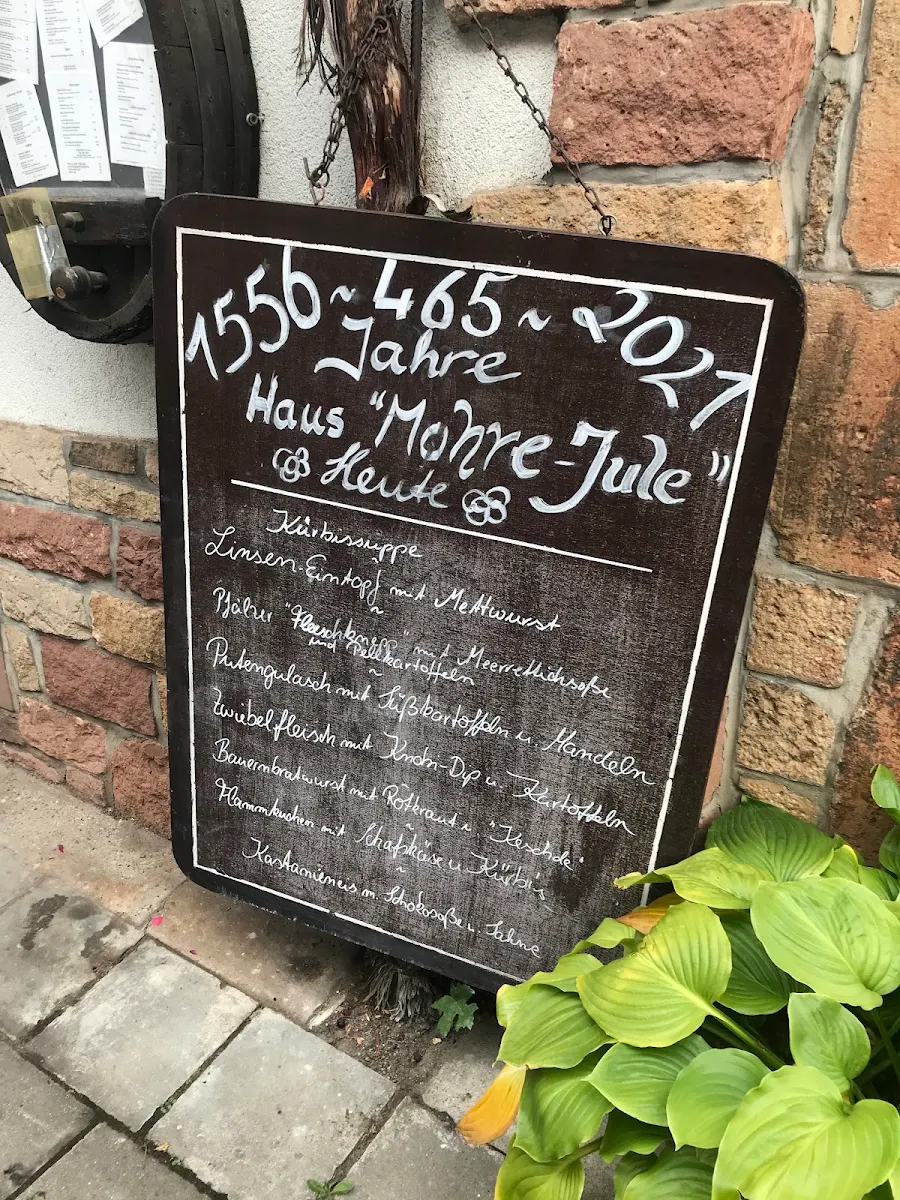 1556 ~ 465 ~ 2021
Jahre
Haus "Mohre-Jule"
Heute
Kürbissuppe
~
Linsen-Eintopf mit Mettwurst
~
Pfälzer "Fleeschknepp" mit Meerrettichsoße
und Pellkartoffeln
~
Putengulasch mit Süßkartoffeln u. Mandeln
Zwiebelfleisch mit Knobi-Dip u. Kartoffeln
Bauernbratwurst mit Rotkraut u. "Keschde"
~
Flammkuchen mit Schafskäse u Kürbis
~
Kastanieneis m. Schokosoße u. Sahne